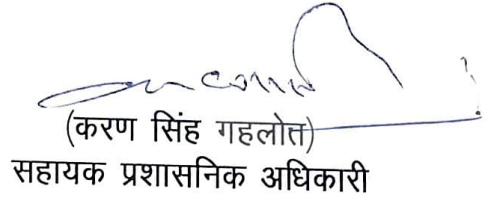 (करण सिंह गहलोत्त)
सहायक प्रशासनिक अधिकारी